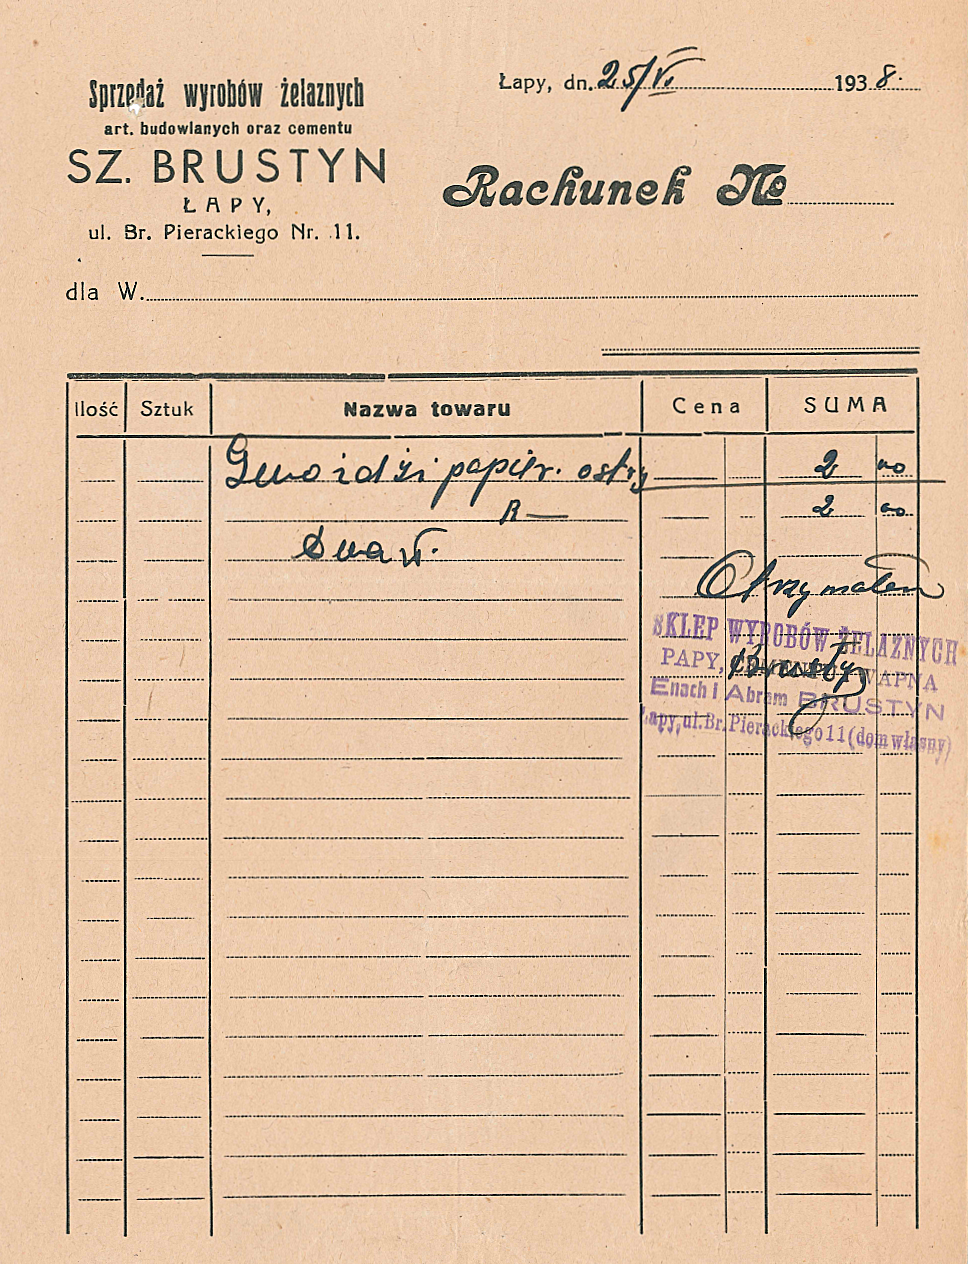 Sprzedaż wyrobów żelaznych
art. budowlanych oraz cementu
SZ. BRUSTYN
ŁAPY,
ul. Br. Pierackiego Nr. 11.
Łapy, dn. 25/VI. 1938.
Rachunek №
dla W.
Ilość Sztuk Nazwa towaru Cena SUMA
Gwoidżi papier. ostry 2 oo
R — 2 oo
Dwa
Otrzymałem
SKLEP WYROBÓW ŻELAZNYCH
PAPY, CEMENTU WAPNA
Enach i Abram BRUSTYN
Łapy, ul. Br. Pierackiego 11 (dom własny)